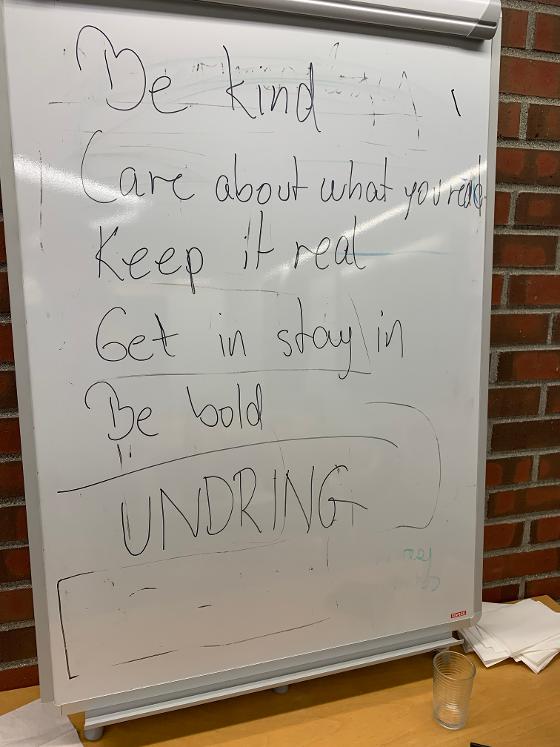 Be kind
Care about what you read
Keep it real
Get in stay in
Be bold
UNDRING